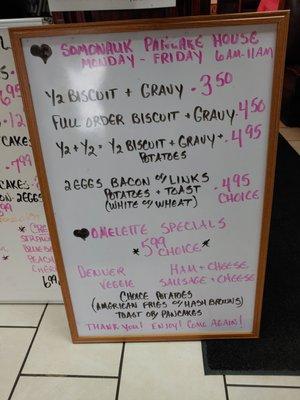 SOMONAUK PANCAKE HOUSE
MONDAY - FRIDAY 6AM-11AM
1/2 BISCUIT + GRAVY • 3.50
FULL ORDER BISCUIT + GRAVY • 4.50
1/2 + 1/2 = 1/2 BISCUIT + GRAVY + 4.95
POTATOES
2 EGGS BACON or LINKS
POTATOES + TOAST
(WHITE or WHEAT)
4.95
CHOICE
OMELETTE SPECIALS
* 5.99 *
CHOICE
DENVER HAM + CHEESE
VEGGIE SAUSAGE + CHEESE
CHOICE POTATOES
(AMERICAN FRIES or HASH BROWNS)
TOAST OR PANCAKES
THANK YOU! ENJOY! COME AGAIN!